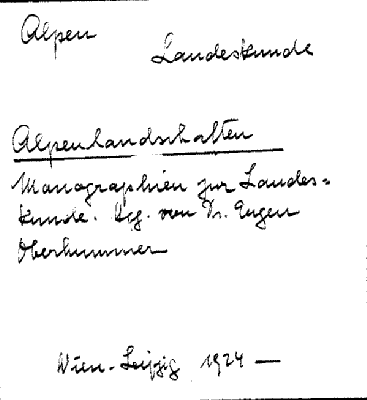 Alpen
Landeskunde
Alpenlandschaften
Monographien zur Landes=
kunde. Hrg. von Dr. Eugen
Oberhummer
Wien-Leipzig 1924 —